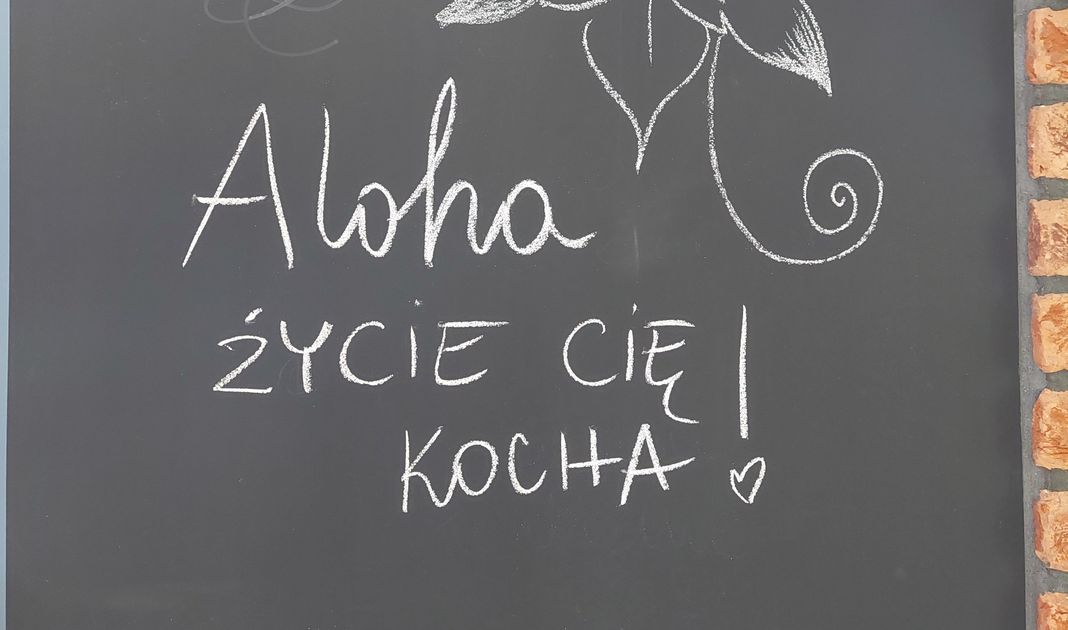 Aloha
ŻYCiE CiĘ!
KOCHA